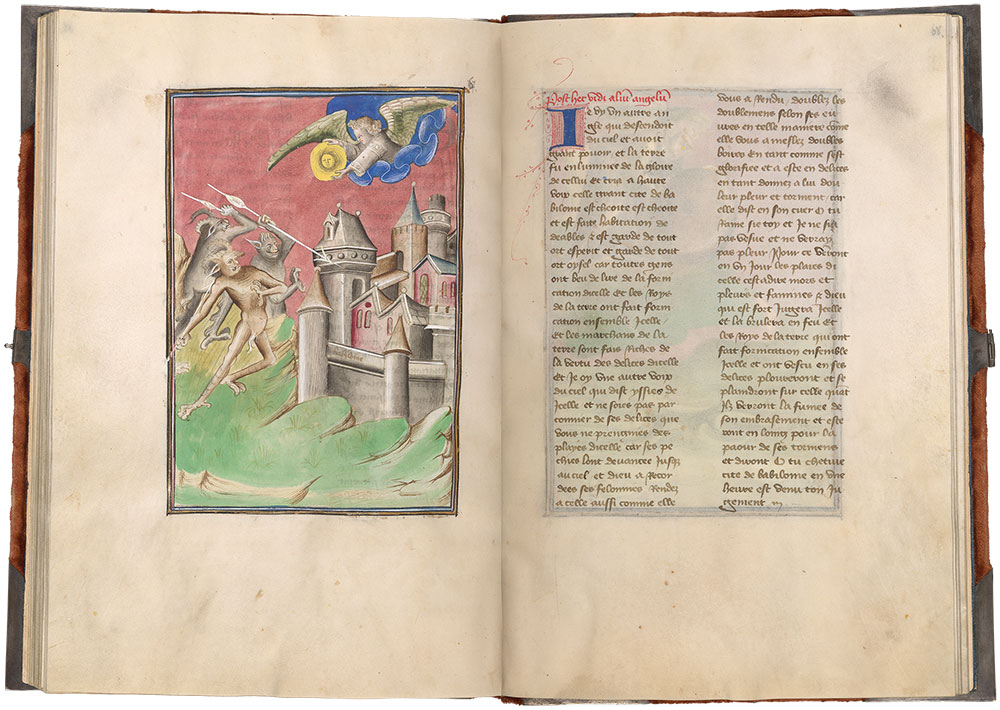 Post hec vidi aliu angelu
Je vy un autre an
gle qui descendoit
du ciel et avoit
grant povoir et la terre
fu enluminee de la gloire
de cellui et cria a haute
voix celle grant cite de ba
biloine est cheoite est cheoite
et est faite habitacion de
deables & est garde de tout
ort esperit et garde de tout
ort oysel car toutes gens
ont beu de lire de la forni
cacion dicelle Et les Roys
de la terre ont fait forni
cacion ensemble Icelle
Et les marchans de la
terre sont fais Riches de
la vertu des delices dicelle
Et Je oy Une autre voix
du ciel qui dist yssies de
Icelle et ne soies pas par
conner de ses delices que
vous ne prengnies des
playes dicelle car ses pe
chies sont devances Jusqz
au ciel et dieu a Recor
dees ses felonnies Rendez
a celle aussi comme elle
vous a Rendu doublez les
doublemens selon ses eu
vres en telle maniere come
elle vous a meslez doubles
boires En tant comme sest
glorifiee et a este en delices
en tant donnez a lui dou
leur pleur et torment car
elle dist en son cuer O tu
Raine sie toy et Je ne sui
pas vesve et ne verray
pas pleur Pour ce venront
en Un Jour les plaies di
celle cestadire mors et
pleurs et famines & dieu
qui est fort Jugera Icelle
et la brulera en feu Et
les Roys de la terre qui ont
fait fornicacion ensemble
Icelle et ont vescu en ses
delices ploureront et se
plaindront sur celle quat
Ilz verront la fumee de
son embrasement et este
ront en loing pour la
paour de ses tormens
et diront O tu chetive
cite de babiloine en Une
heure est venu ton Ju
gement